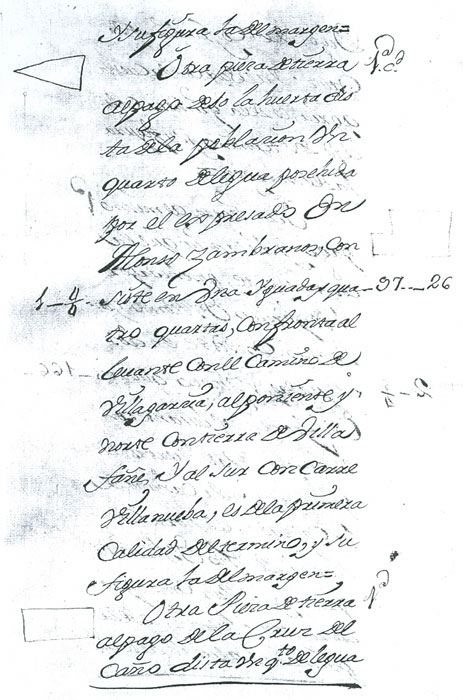 Y su figura la del margen=
Otra pieza de tierra 1ª Cd
al pago de so la huerta dis
ta de la poblacion un
quarto de legua posehida
por el expresado Dn
Alonso Zambranos, con
1_4/6 siste en una Yguada y qua_37_26
tro quartas, confronta al
levante con el Camino de
Villagarcia, al poniente y
norte con tierra de Villa
fañe, Y al Sur con Carre
Villanueba, es de la primera
Calidad del termino, y su
figura la del margen=
Otra Pieza de tierra 1ª
al pago de la Cruz del
Caño dista un qto de legua